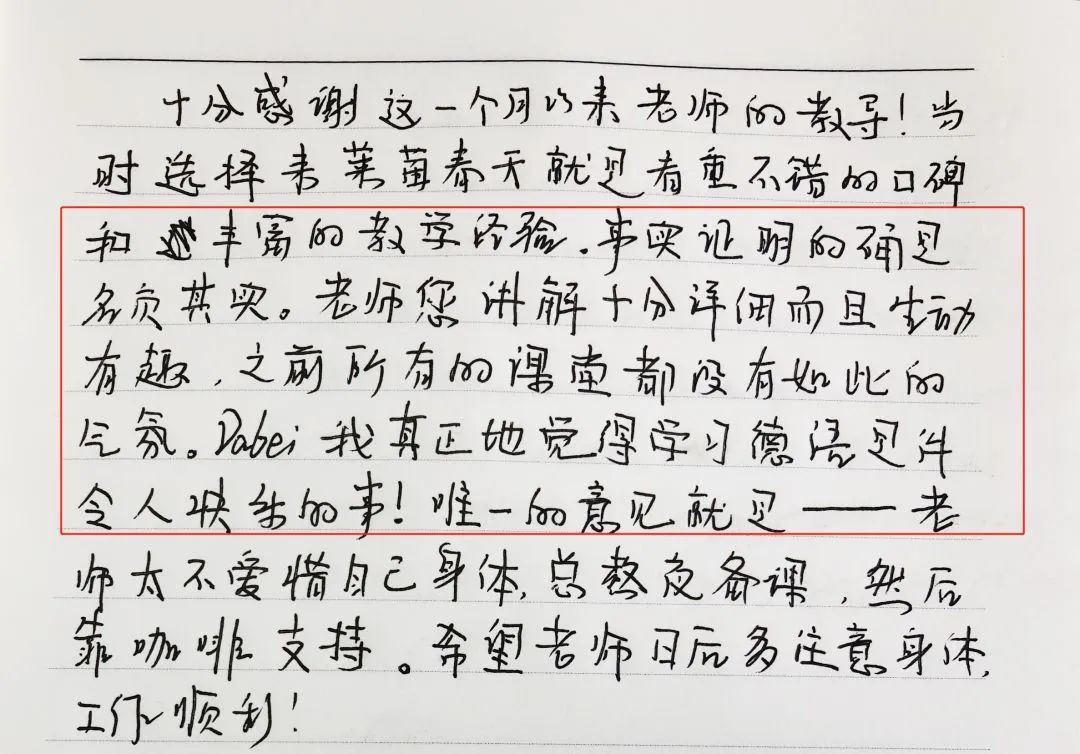 十分感谢这一个月以来老师的教导！当
时选择来莱茵春天就是看重不错的口碑
和丰富的教学经验。事实证明的确是
名负其实。老师您讲解十分详细而且生动
有趣，之前所有的课堂都没有如此的
气氛。Dabei 我真正地觉得学习德语是件
令人快乐的事！唯一的意见就是——老
师太不爱惜自己身体，总熬夜备课，然后
靠咖啡支持。希望老师日后多注意身体，
工作顺利！